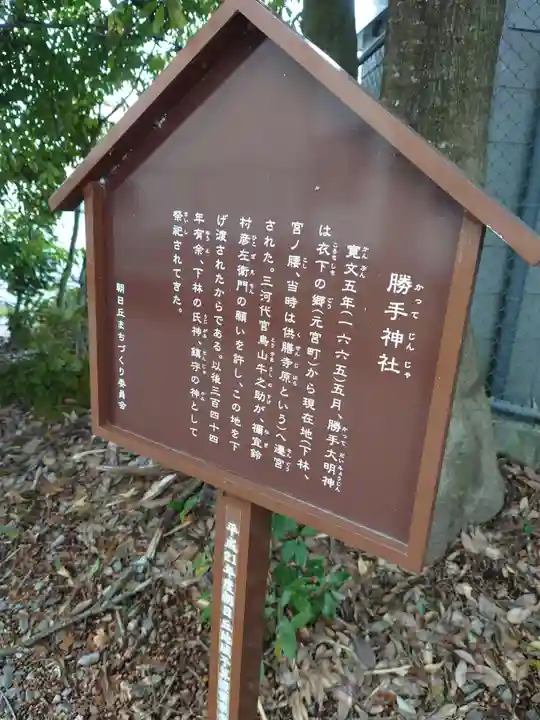 勝手神社
寛文五年(一六六五)五月、勝手大明神
は衣下の郷(元宮町)から現在地(下林、
宮ノ腰、当時は供膳寺原という)へ遷宮
された。三河代官鳥山牛之助が、禰宜鈴
村彦左衛門の願いを許し、この地を下
げ渡されたからである。以後三百四十四
年有余、下林の氏神、鎮守の神として
祭祀されてきた。
朝日丘まちづくり委員会